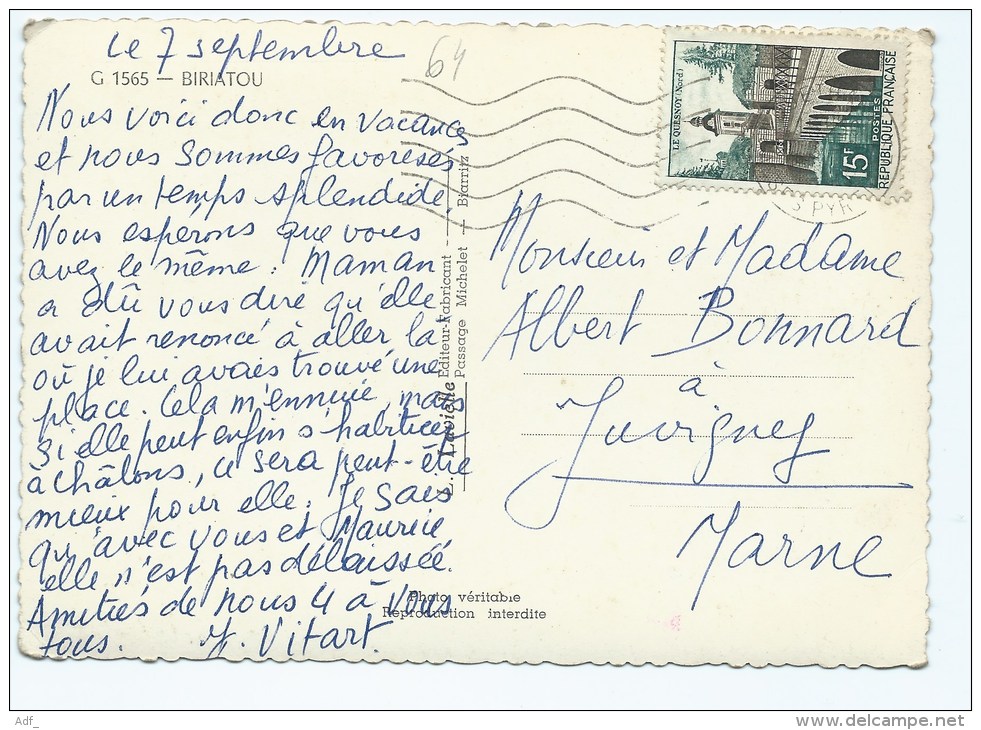 Le 7 septembre
64
G 1565 — BIRIATOU
Nous voici donc en vacances
et nous sommes favoresés
par un temps splendide.
Nous espérons que vous
avez le même. Maman
a dû vous dire qu'elle
avait renoncé à aller là
où je lui avais trouvé une
place. Cela m'ennuie, mais
si elle peut enfin s'habituer
à Châlons, ce sera peut-être
mieux pour elle. Je sais
qu'avec vous et Maurice
elle n'est pas délaissée.
Amitiés de nous 4 à vous
tous. Y. Vitart.
L. Lavielle Editeur-Fabricant
Passage Michelet — Biarritz
Photo véritable
Reproduction interdite
LE QUESNOY (Nord)
15F
POSTES
REPUBLIQUE FRANÇAISE
PYR
Monsieur et Madame
Albert Bonnard
à
Juvigney
Marne
Adf_
www.delcampe.net